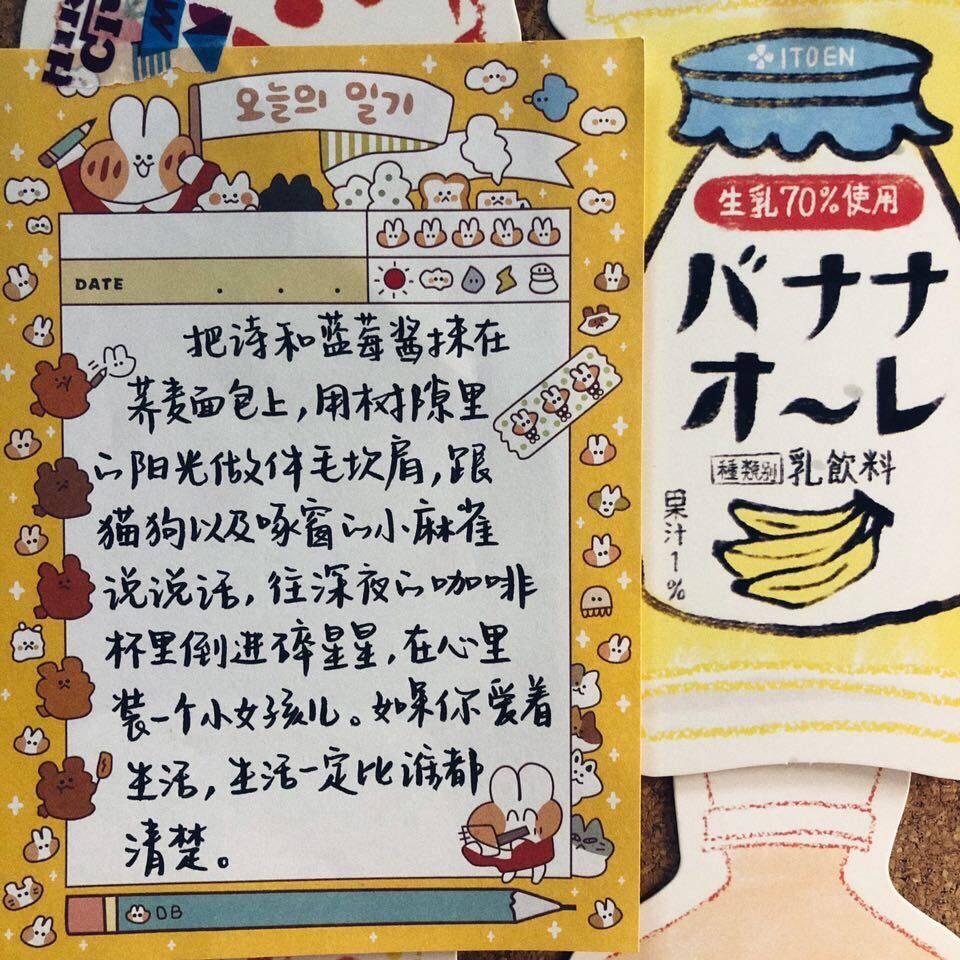 오늘의 일기
DATE
把诗和蓝莓酱抹在
荞麦面包上，用树隙里
的阳光做件毛坎肩，跟
猫狗以及啄窗的小麻雀
说说话，往深夜的咖啡
杯里倒进碎星星，在心里
装一个小女孩儿。如果你爱着
生活，生活一定比谁都
清楚。
DB
ITOEN
生乳70%使用
バナナ
オ〜レ
種類別 乳飲料
果汁1%